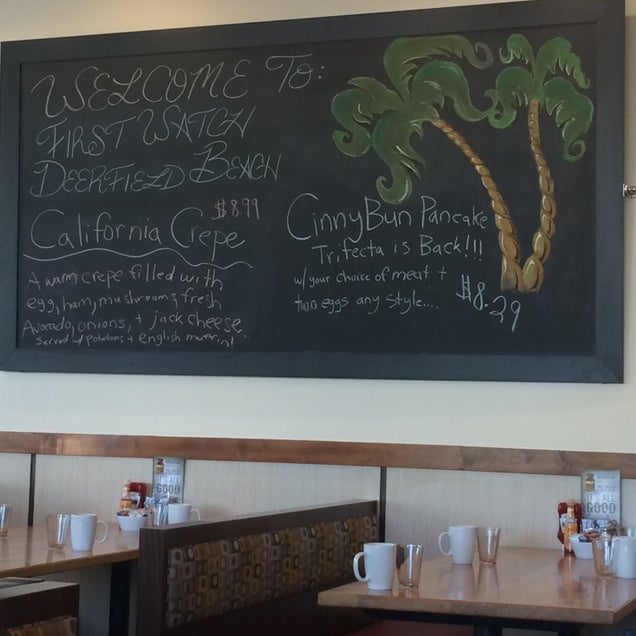 WELCOME TO:
FIRST WATCH
DEERFIELD BEACH
$8.99
California Crepe
A warm crepe filled with
egg, ham, mushrooms, fresh
Avocado, onions, + jack cheese.
Served w/ potatoes + english muffin!
CinnyBun Pancake
Trifecta is Back!!!
w/ your choice of meat +
two eggs any style....
$8.29
IT'S ALL
GOOD
IT'S ALL
GOOD